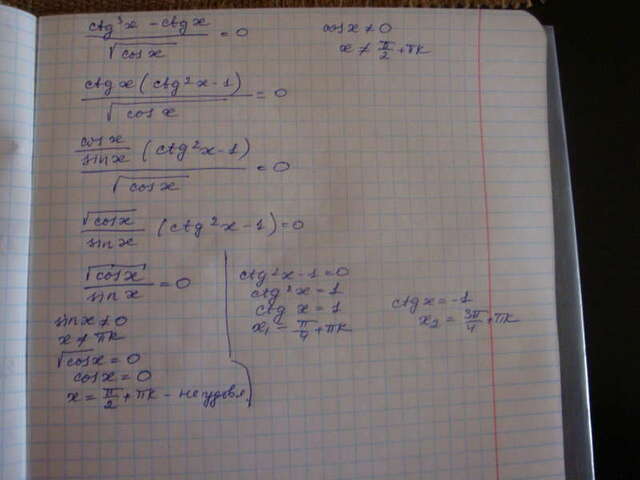 (ctg³x - ctgx)/√cosx = 0
cosx ≠ 0
x ≠ π/2 + πk
(ctgx(ctg²x-1))/√cosx = 0
(cosx/sinx (ctg²x-1))/√cosx = 0
√cosx/sinx (ctg²x-1) = 0
√cosx/sinx = 0
sinx ≠ 0
x ≠ πk
√cosx = 0
cosx = 0
x = π/2 + πk - не удовл.
ctg²x-1=0
ctg²x = 1
ctgx = 1
x₁ = π/4 + πk
ctgx = -1
x₂ = 3π/4 + πk